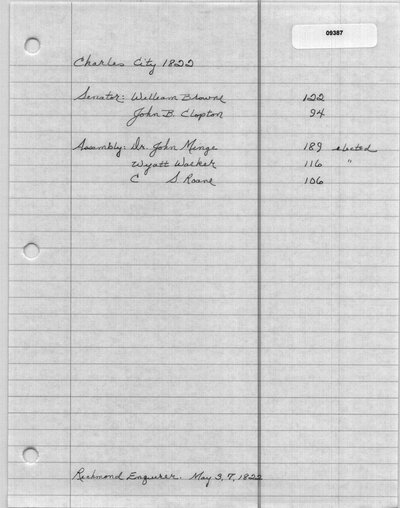 09387
Charles City 1822
Senator: William Browne 122
John B. Clopton 94
Assembly: Dr. John Minge 189 elected
Wyatt Walker 116 "
C S Roane 106
Richmond Enquirer. May 3, 7, 1822